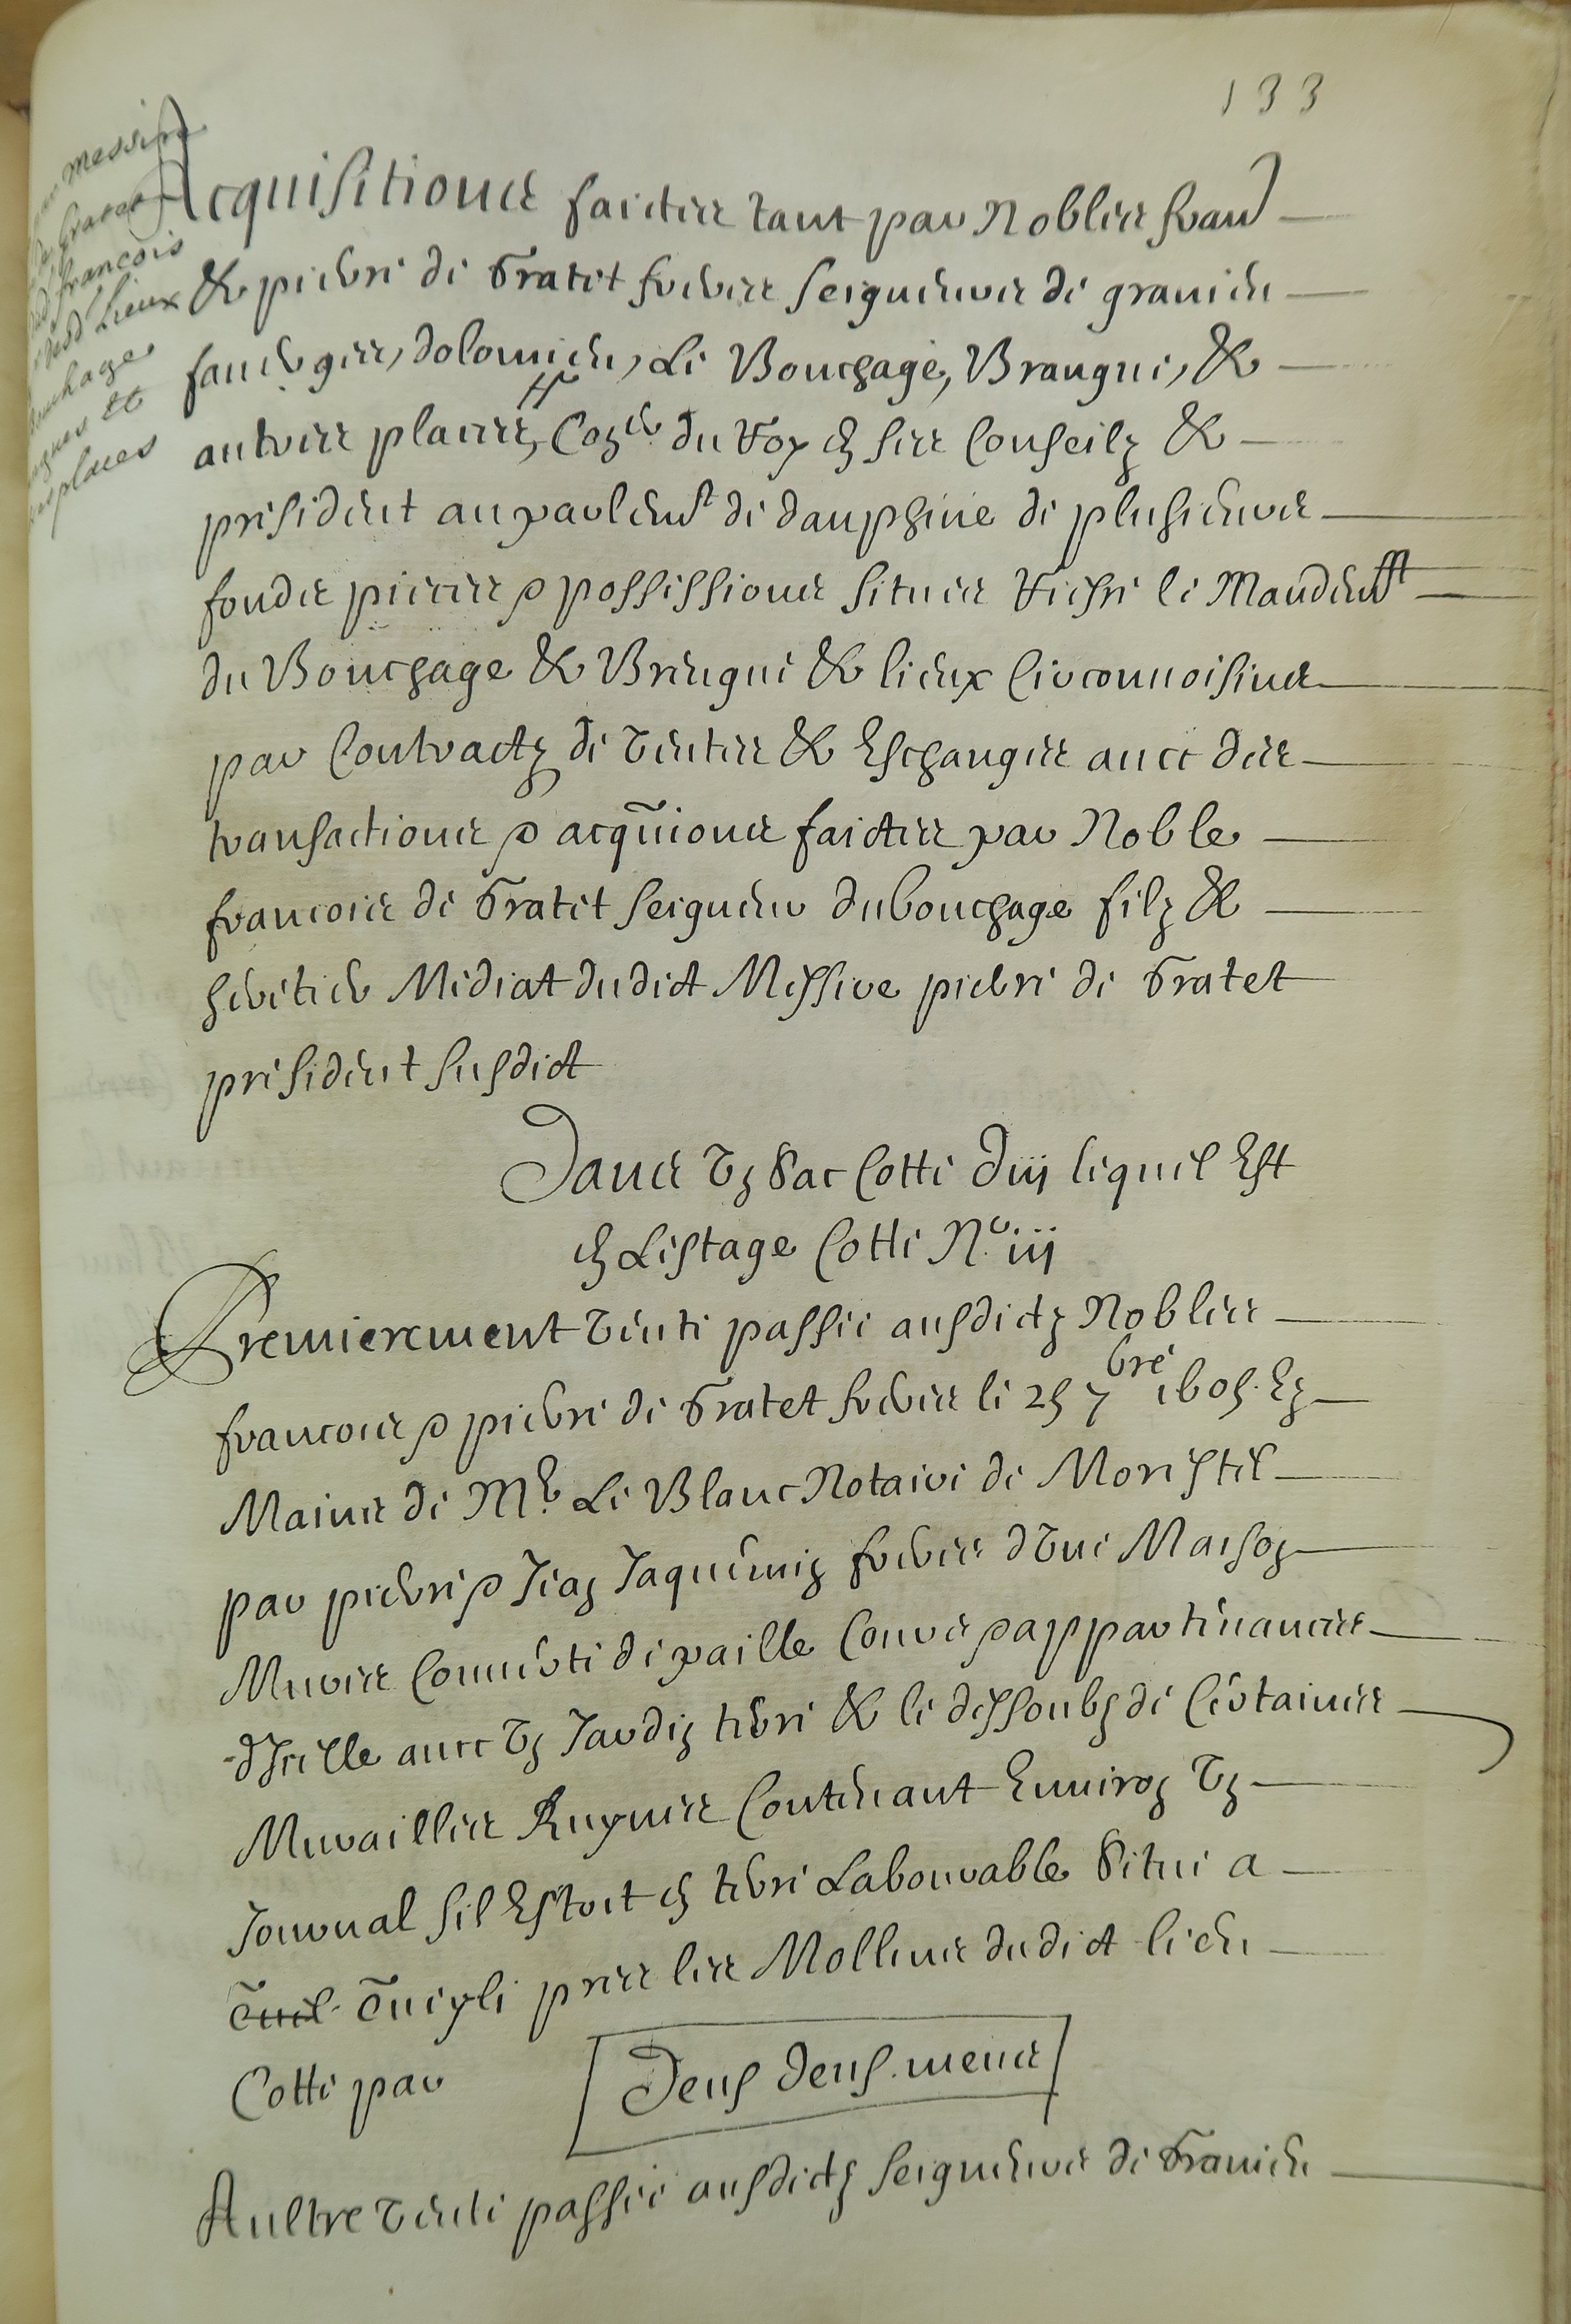 133
messire
de Gratet
francois
desd lieux
Bouchage
Brangues et
places
Acquisitions faictes tant par Nobles fran
& pierre de Gratet freres seigneurs de granieu
fauerges, dolomieu, Le Bouchage, Brangue, &
autres places, Con.er du Roy en ses Conseilz &
president au parlemt de dauphine de plusieurs
fonds pieces & possessions situes riesre le Mandemt
du Bouchage & Brengue & lieux circonuoisins
par Contractz de vente & Eschanges auec des
transactions & acquions faictes par Noble
francois de Gratet seigneur du bouchage filz &
heritier Mediat dudict Messire pierre de Gratet
president susdict
Dans vn sac Cotté Diij lequel Est
en Lestage Cotté N.o iij
Premierement vente passee ausdictz Nobles
francois & pierre de Gratet freres le 25 7bre 1605. Es
Mains de Me. Le Blanc Notaire de Morestel
par pierre & Jean Jaquemin freres d'vne Maison
Mures Couuerte de paille Cours & appartenances
d'Icelle auec vn Jardin terre & le dessoubz de Certaines
Murailles Ruynes Contenant Enuiron vn
Journal sil Estoit en terre Labourable situé a
Cuel Cueyle pres les Mollins dudict lieu
Cotté par Deus deus meus
Aultre vente passee ausdictz seigneurs de Granieu